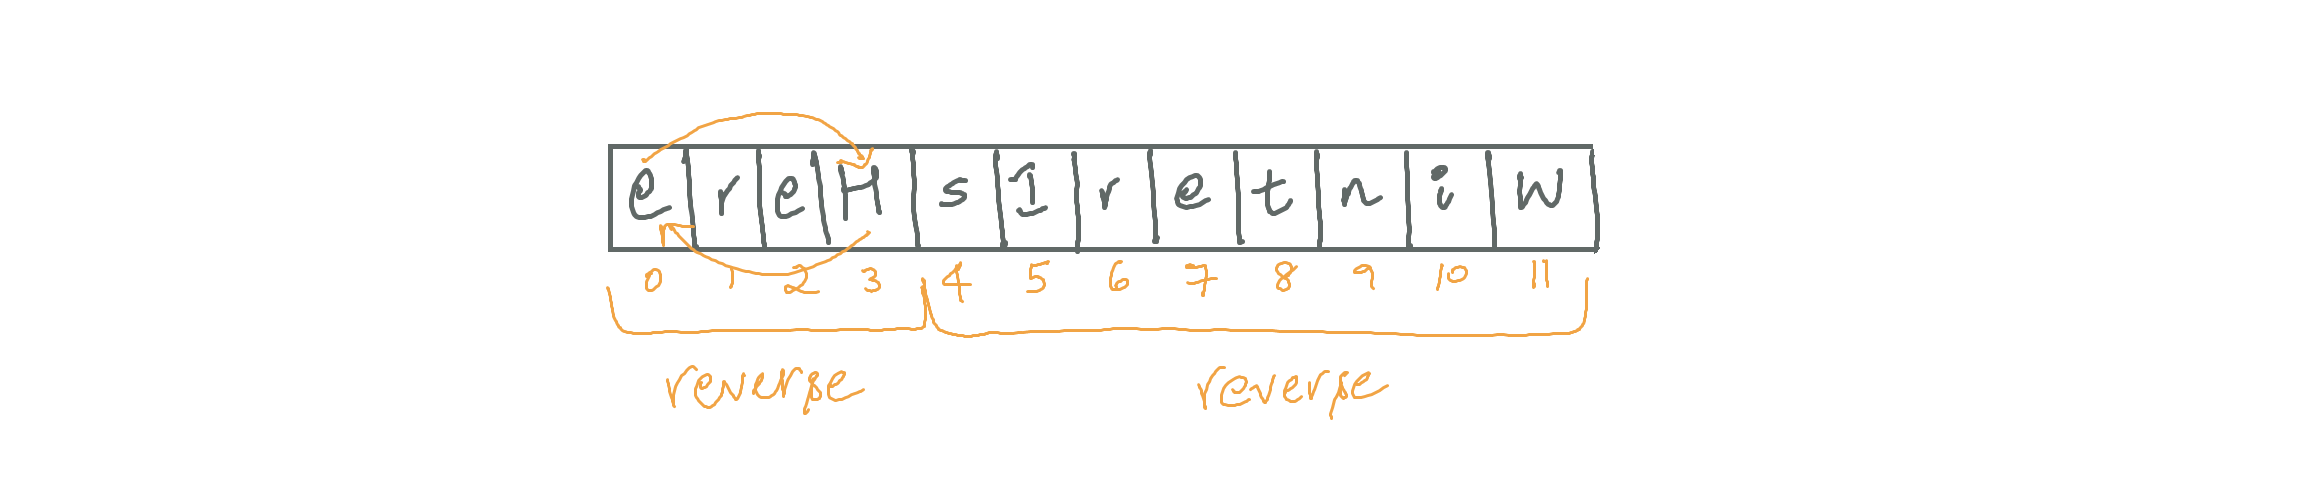 e r e H s I r e t n i W
0 1 2 3 4 5 6 7 8 9 10 11
reverse reverse